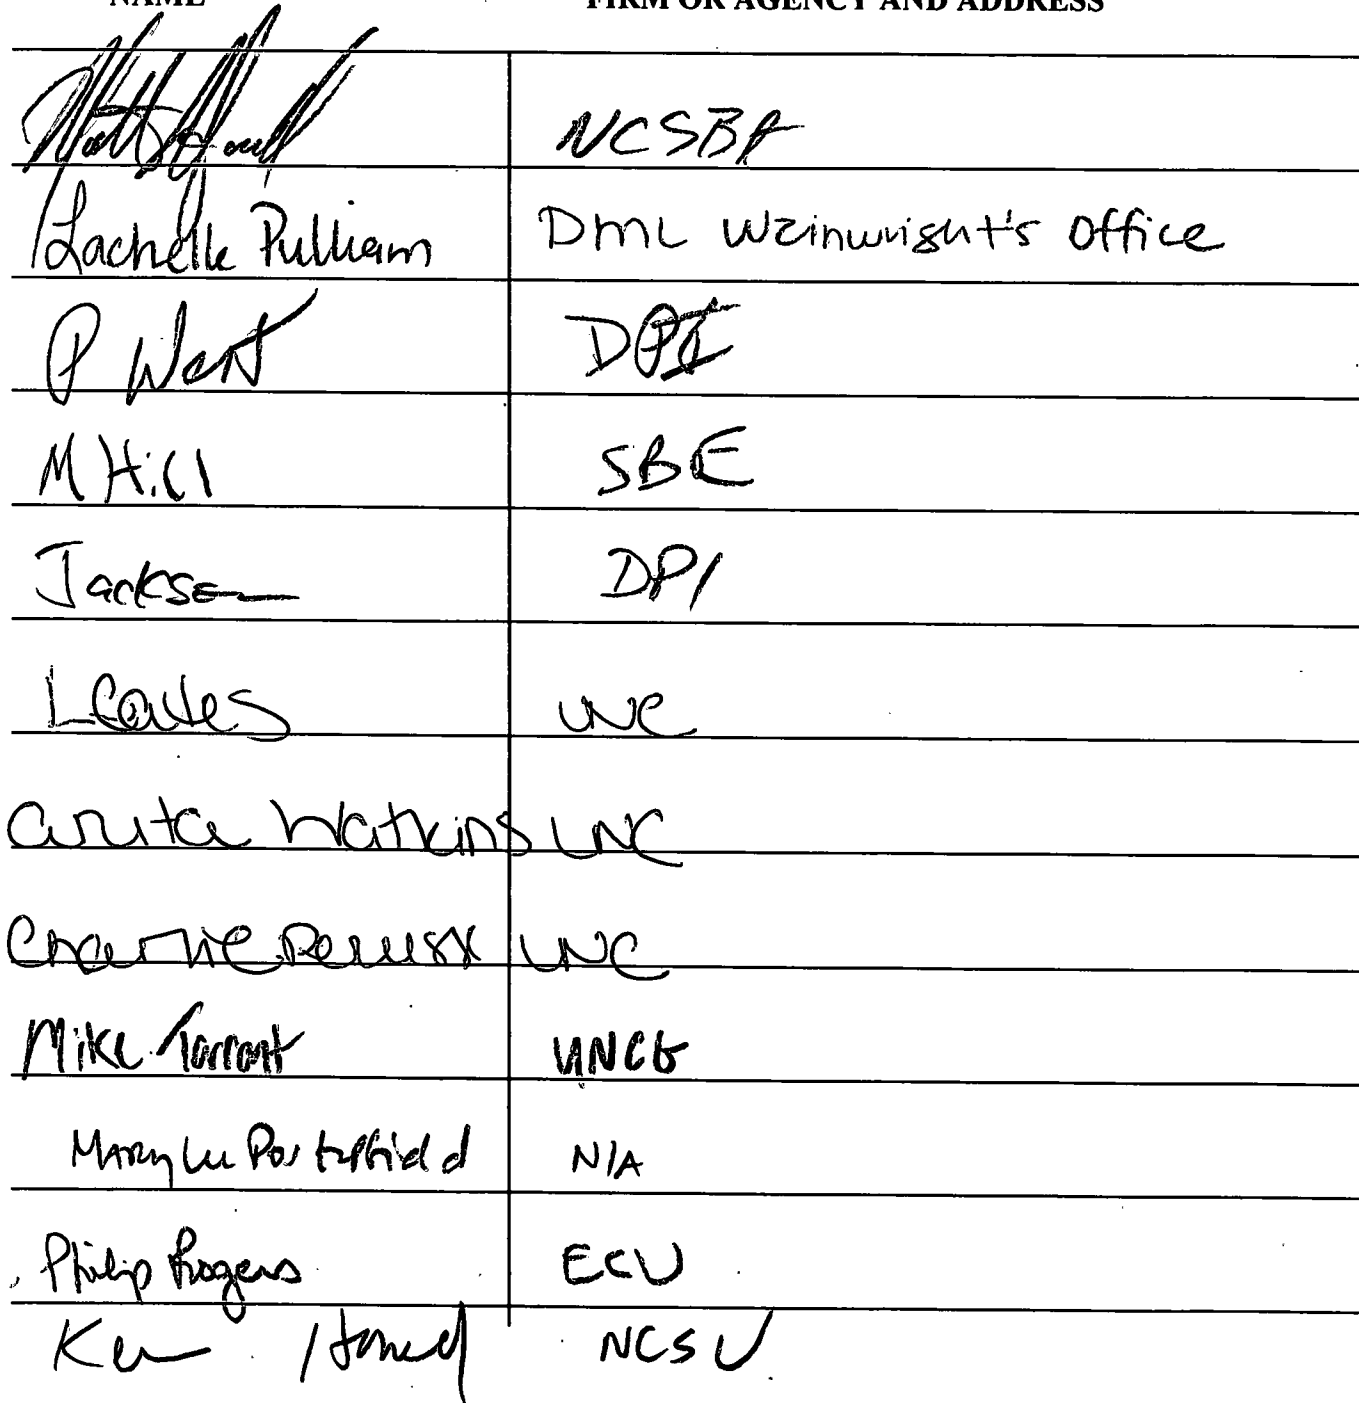 NAME FIRM OR AGENCY AND ADDRESS
NCSBA
Lachelle Pulliam DML Wainwright's Office
P West DPI
M Hill SBE
Jackson DPI
UNC
Anita Watkins UNC
Charlie Perusse UNC
Mike Tarrant UNCG
Mary Lu Porterfield N/A
Philip Rogers ECU
Howell NCSU